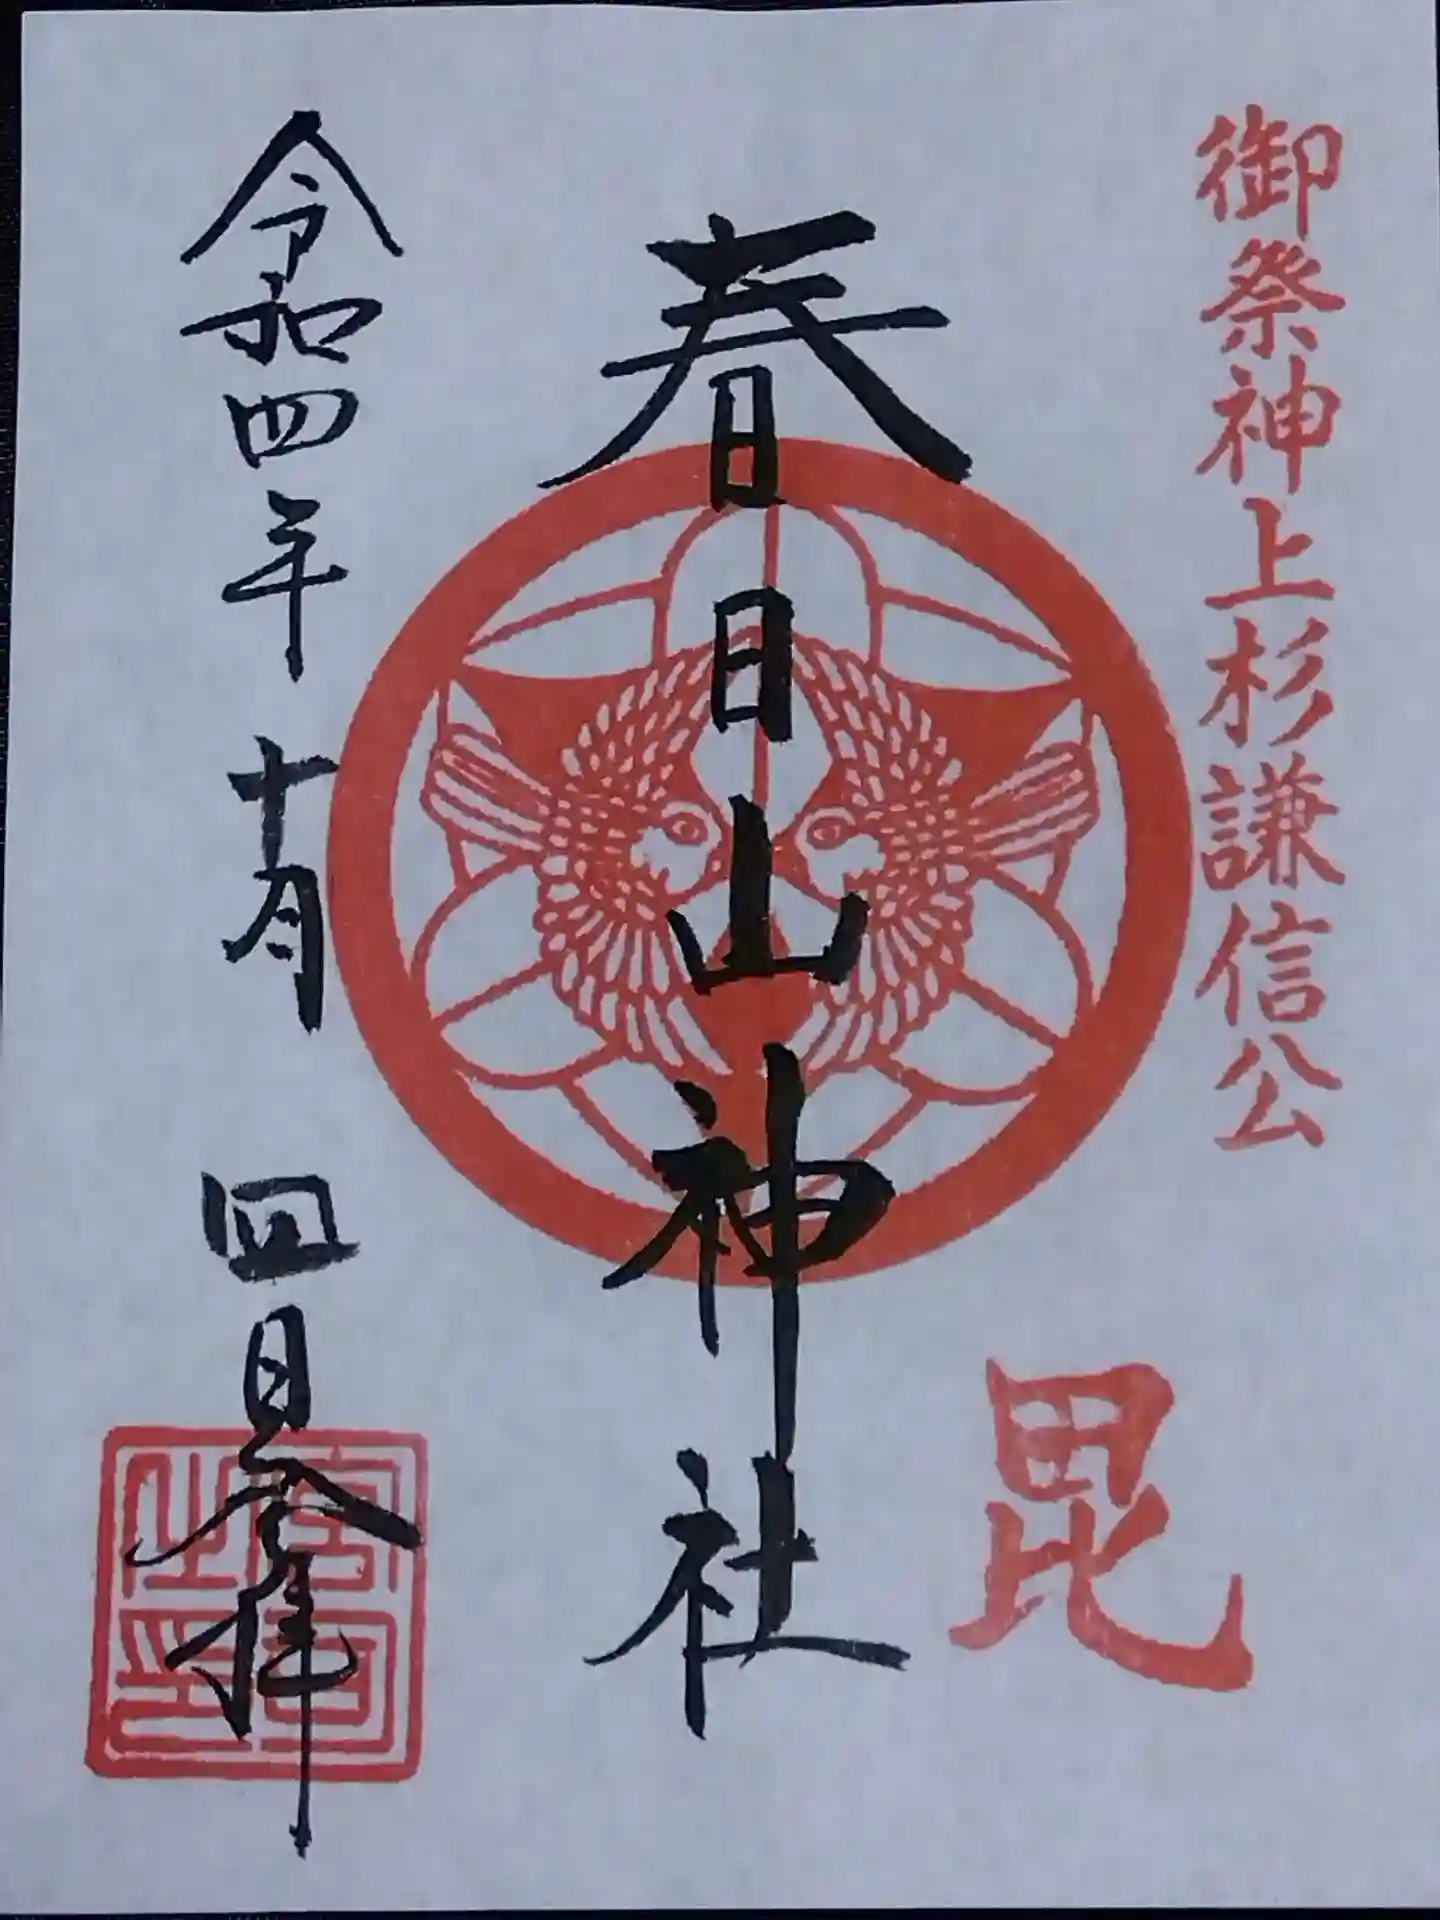 御祭神上杉謙信公
毘
春日山神社
令和四年十月四日参拝
宮司之印